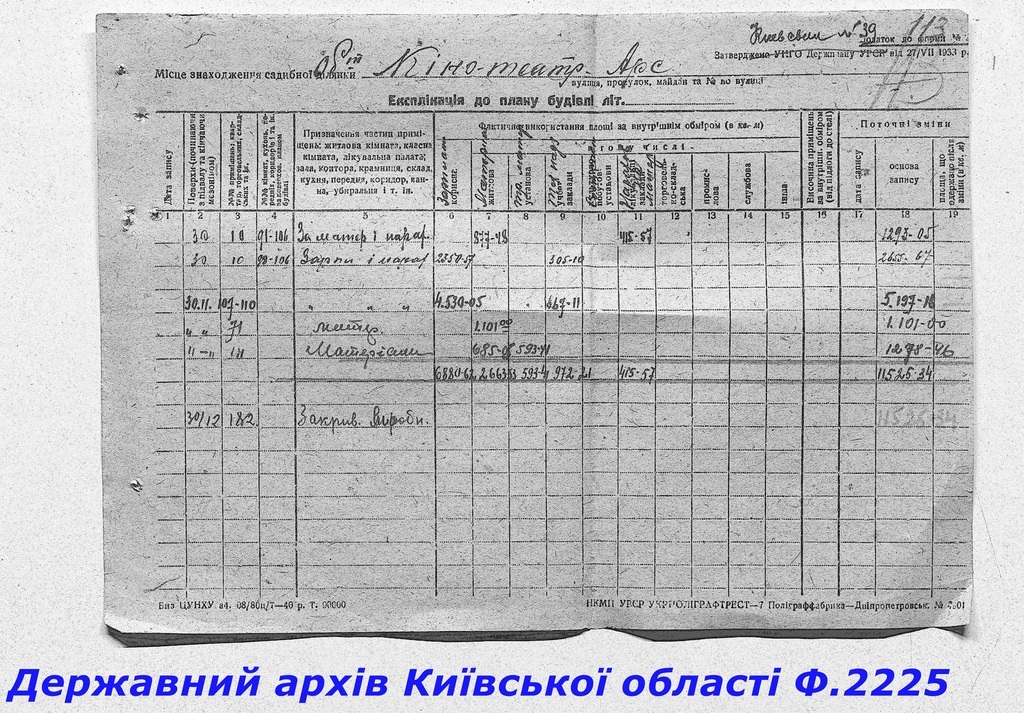 Киевская № 39 113
Додаток до форми №
Затверджено УНГО Держплану УРСР від 27/VII 1933 р.
Місце знаходження садибної ділянки Кіно-театр Арс
вулиця, провулок, майдан та № по вулиці
Експлікація до плану будівлі літ.
Дата запису
Поверхи (починаючи з підвалу та кінчаючи мезоніном)
Призначення частин приміщень: житлова кімната, класна кімната, лікувальна палата; зала, контора, крамниця, склад, кухня, передня, коридор, ванна, убиральня і т. ін.
Фактичне використання площі за внутрішнім обміром (в кв. м)
в тому числі
житлова
установа
учбові заклади
установи
торговельно-складська
промислова
службова
інша
Височина приміщень за внутрішн. обміром (від підлоги до стелі)
Поточні зміни
дата запису
основа запису
площа, що одержано після зміни (в кв. м)
1 2 3 4 5 6 7 8 9 10 11 12 13 14 15 16 17 18 19
30 10 91-106 За матер і нарах 877-48 415-57 1293-05
30 10 98-106 Зарпл і нарах 2350-57 305-10 2655-67
30.11. 107-110 " " " 4.530-05 667-11 5.197-16
" " 71 матер. 1.101 00 1.101-00
" - " 111 Матеріали 685-05 593-41 1278-46
6880-62 2663-53 593-41 972-21 415-57 11525-34
30/12 182 Закрив. Вироби. 11525-34
Виз ЦУНХУ а4. 08/80ц/7—40 р. Т. 90000
НКМП УРСР УКРПОЛІГРАФТРЕСТ—7 Поліграффабрика—Дніпропетровськ. №
Державний архів Київської області Ф.2225